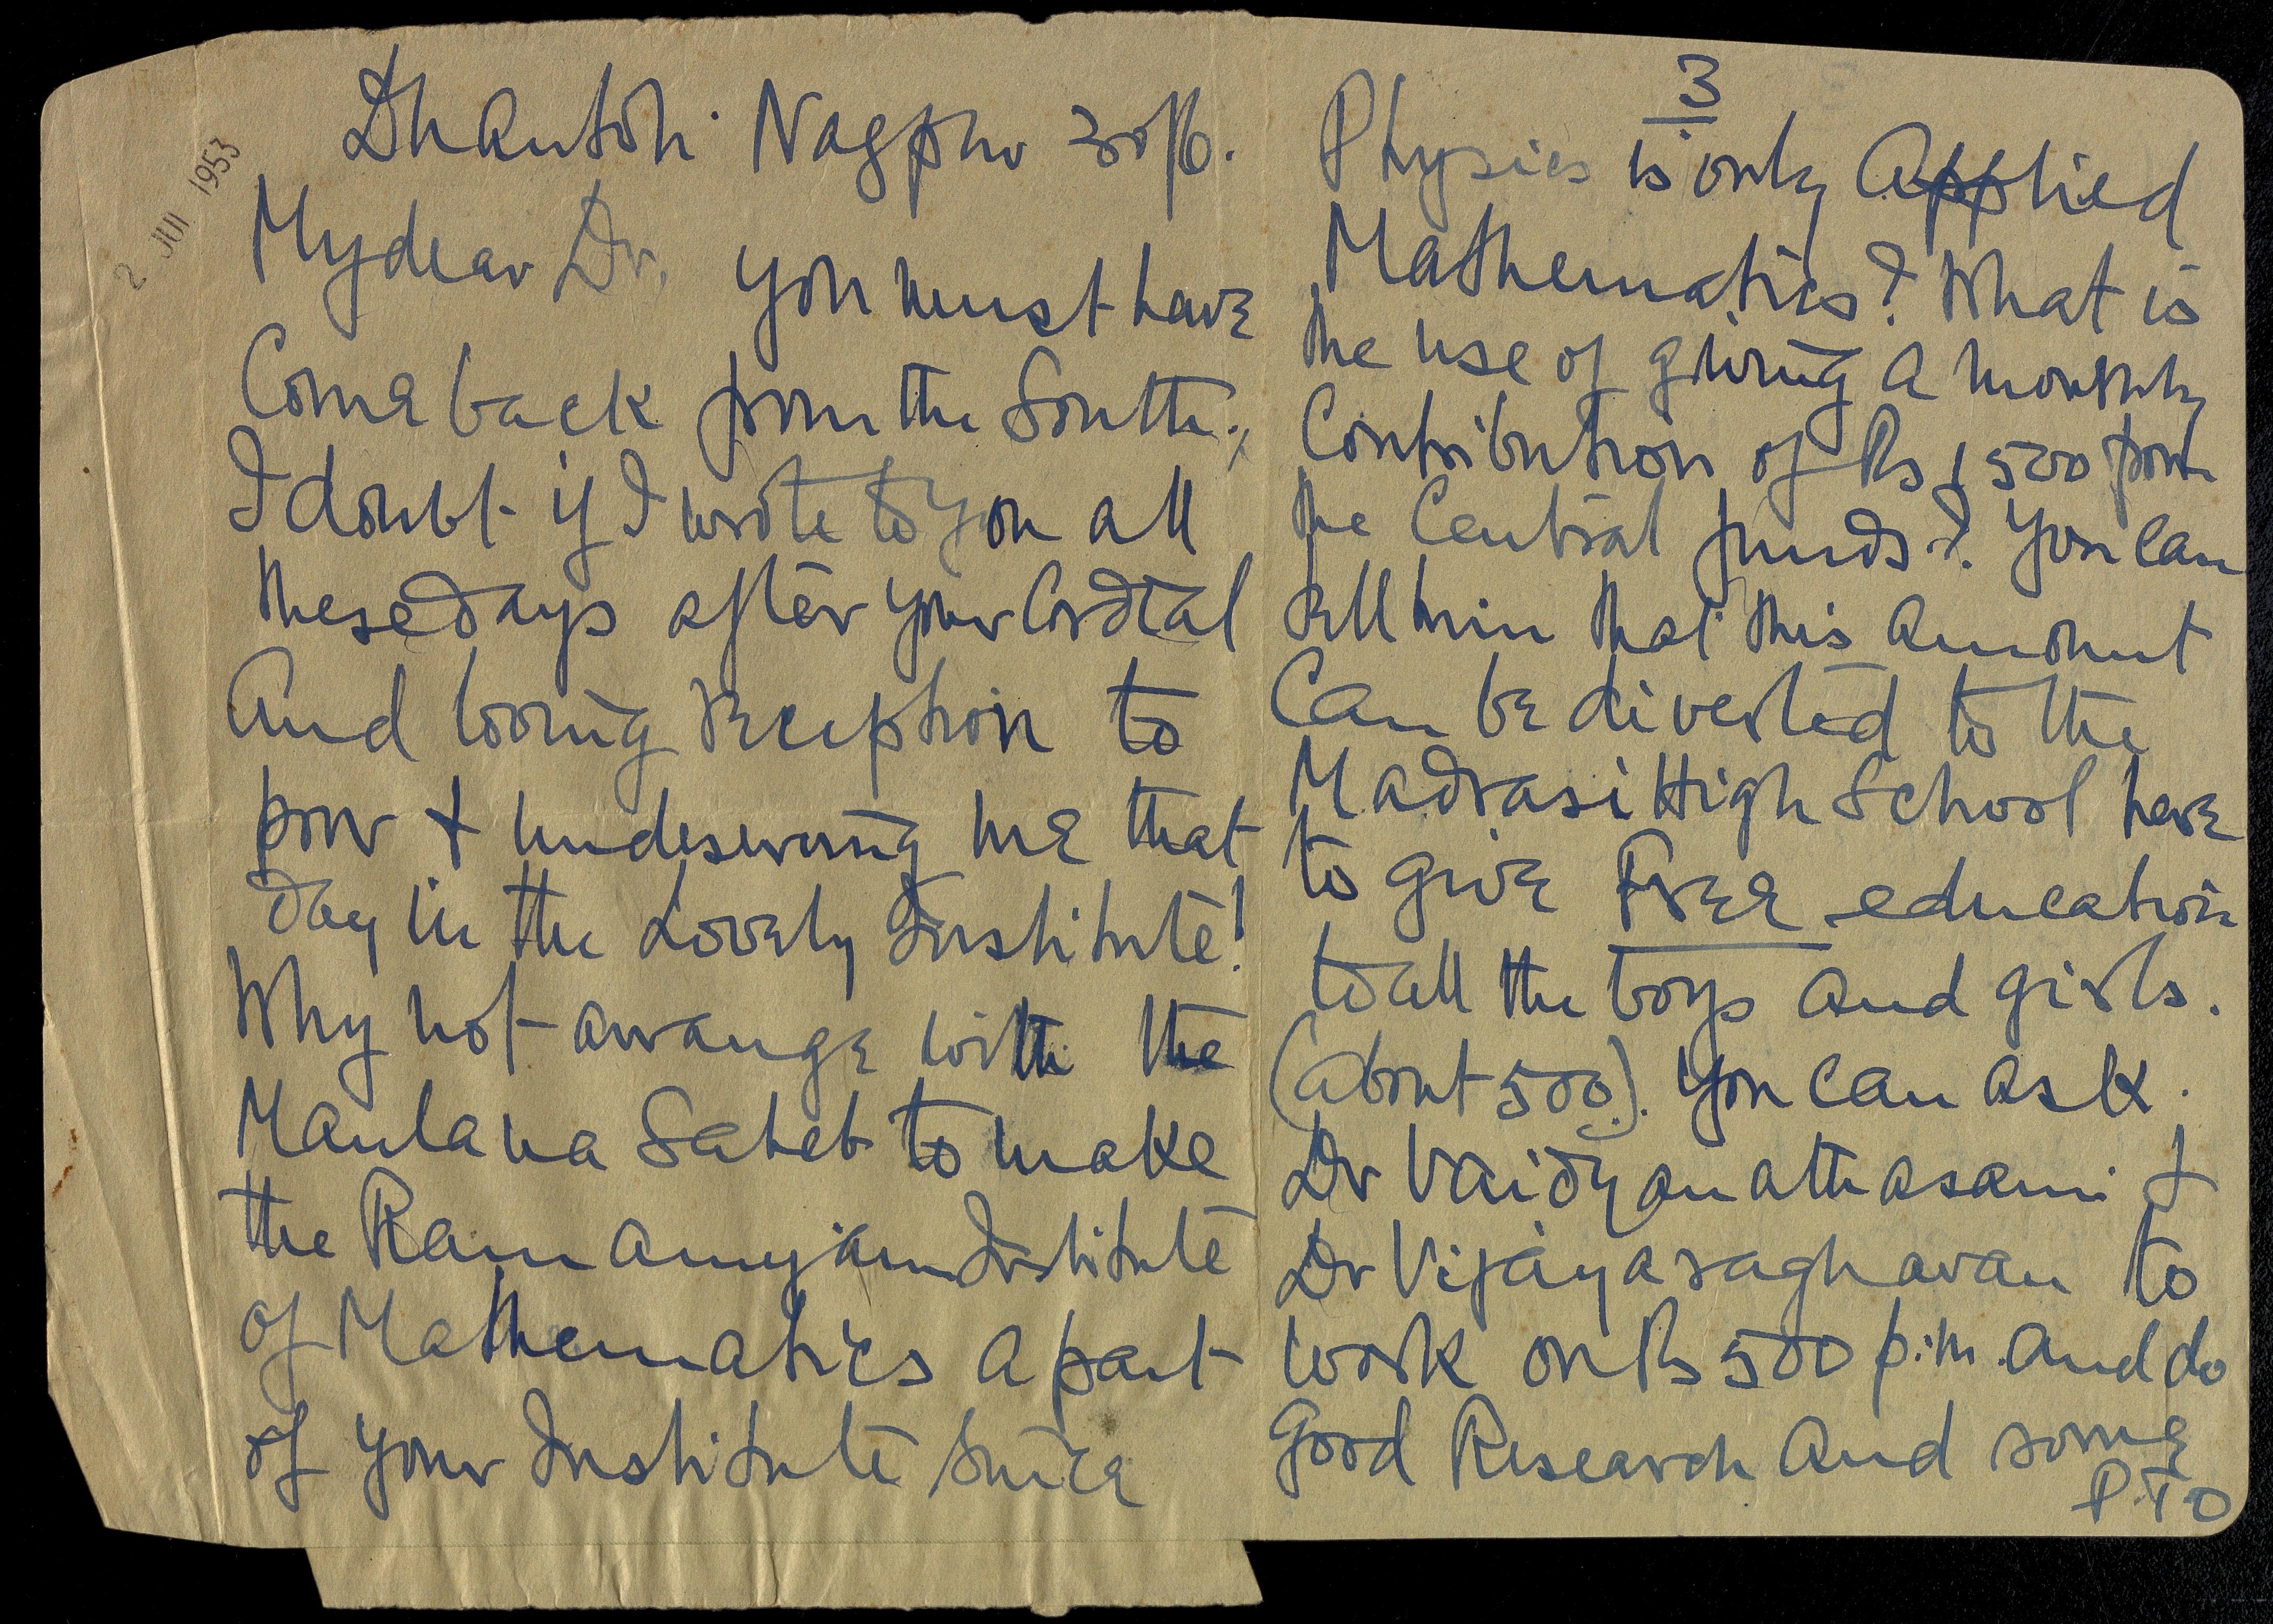 2 JUL 1953
Dhantoli Nagpur 30/6.
My dear Dr. You must have
Come back from the South.,
I doubt if I wrote to you all
these days after your Cordial
And loving reception to
poor & undeserving me that
day in the Lovely Institute!
Why not arrange with the
Maulana Saheb to make
the Ramanujam Institute
of Mathematics a part
of your Institute since
3
Physics is only Applied
Mathematics? What is
the use of giving a monthly
Contribution of Rs 1500 from
the Central funds? You can
tell him that this amount
Can be diverted to the
Madrasi High School here
to give Free education
to all the boys and girls.
(about 500). You can ask.
Dr Vaidyanathasami &
Dr Vijayaraghavan to
work on Rs 500 p.m. and do
Good Research and some
PTO